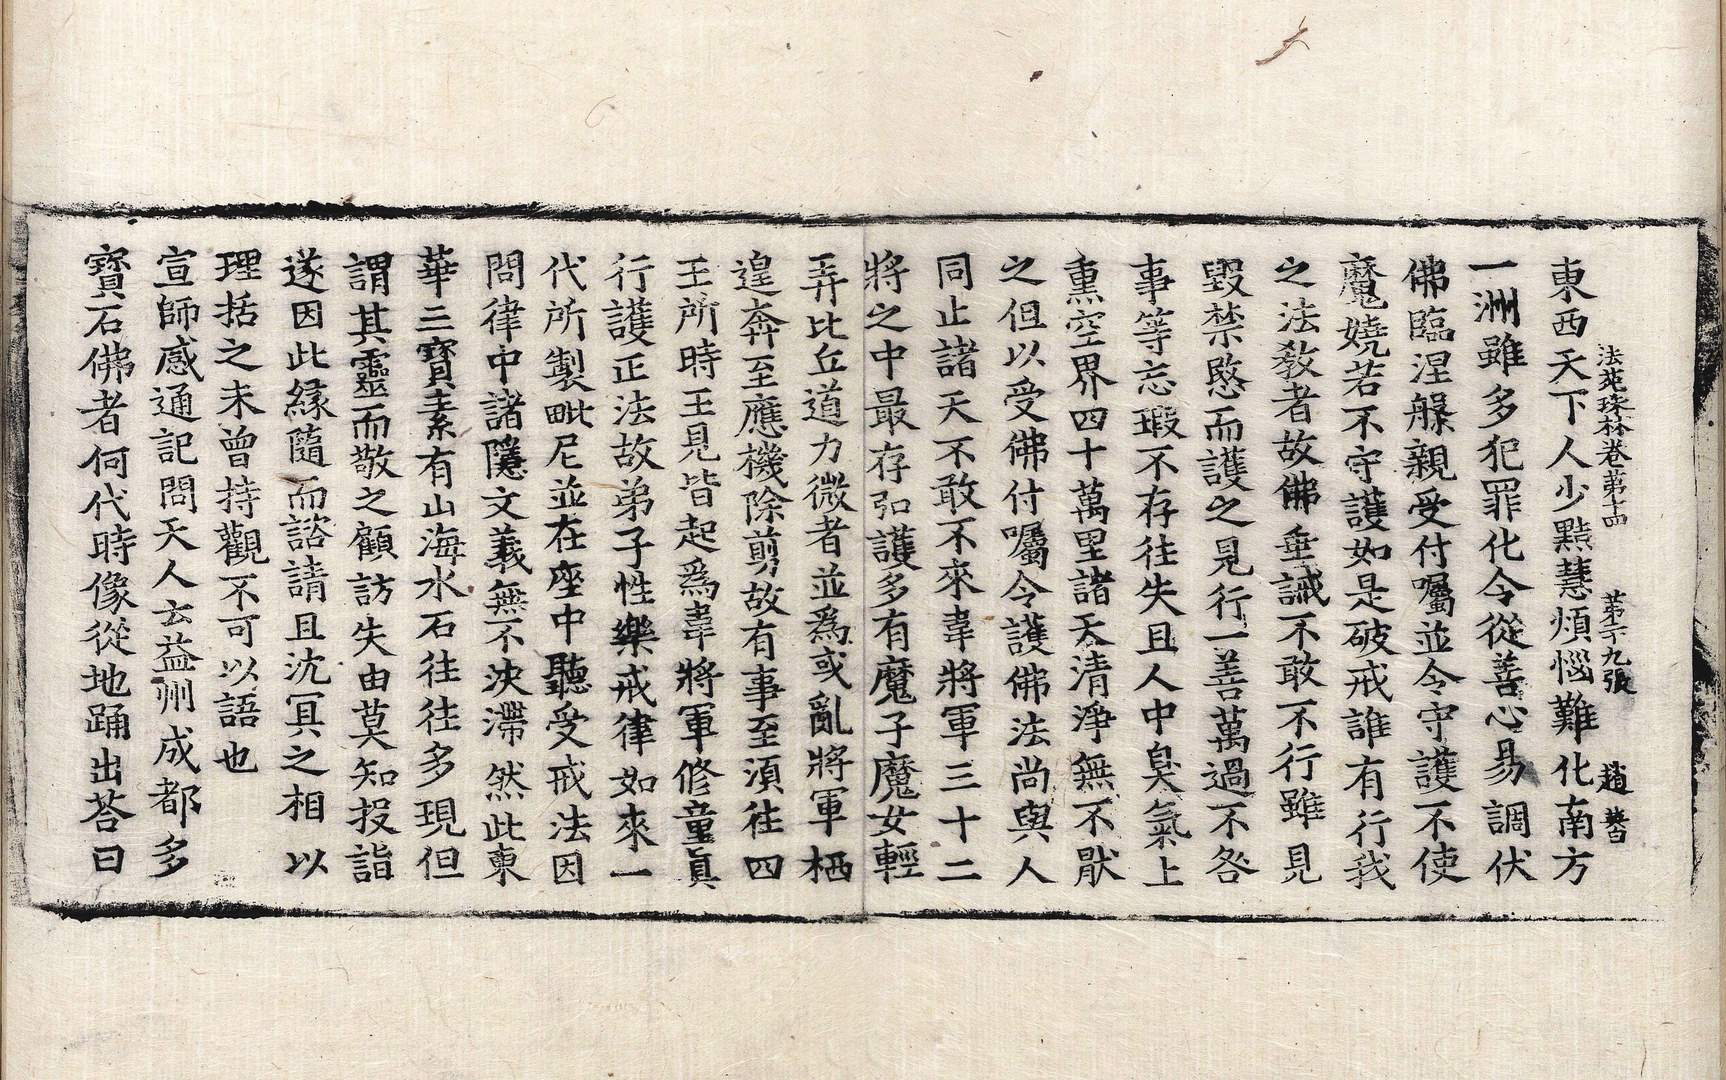 法苑珠林卷第十四 第二十九張 趙
東西天下人少黠慧煩惱難化南方
一洲雖多犯罪化令從善心易調伏
佛臨涅槃親受付囑並令守護不使
魔嬈若不守護如是破戒誰有行我
之法敎者故佛垂誡不敢不行雖見
毀禁愍而護之見行一善萬過不咎
事等忘瑕不存往失且人中臭氣上
熏空界四十萬里諸天清淨無不猒
之但以受佛付囑令護佛法尚與人
同止諸天不敢不來韋將軍三十二
將之中最存弘護多有魔子魔女輕
弄比丘道力微者並爲或亂將軍栖
遑奔至應機除剪故有事至須往四
王所時王見皆起爲韋將軍修童眞
行護正法故弟子性樂戒律如來一
代所製毗尼並在座中聽受戒法因
問律中諸隱文義無不決滯然此東
華三寶素有山海水石往往多現但
謂其靈而敬之顧訪失由莫知投詣
遂因此緣隨而諮請且沈冥之相以
理括之未曾持觀不可以語也
宣師感通記問天人云益州成都多
寶石佛者何代時像從地踊出荅曰